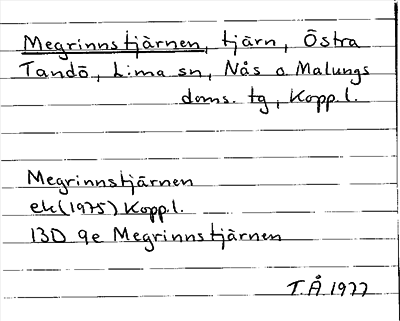 Megrinnstjärnen, tjärn, Östra
Tandö, Lima sn, Nås o Malungs
doms. tg, Kopp. l.
Megrinnstjärnen
ek (1975) Kopp. l.
13D 9e Megrinnstjärnen
T.Å. 1977